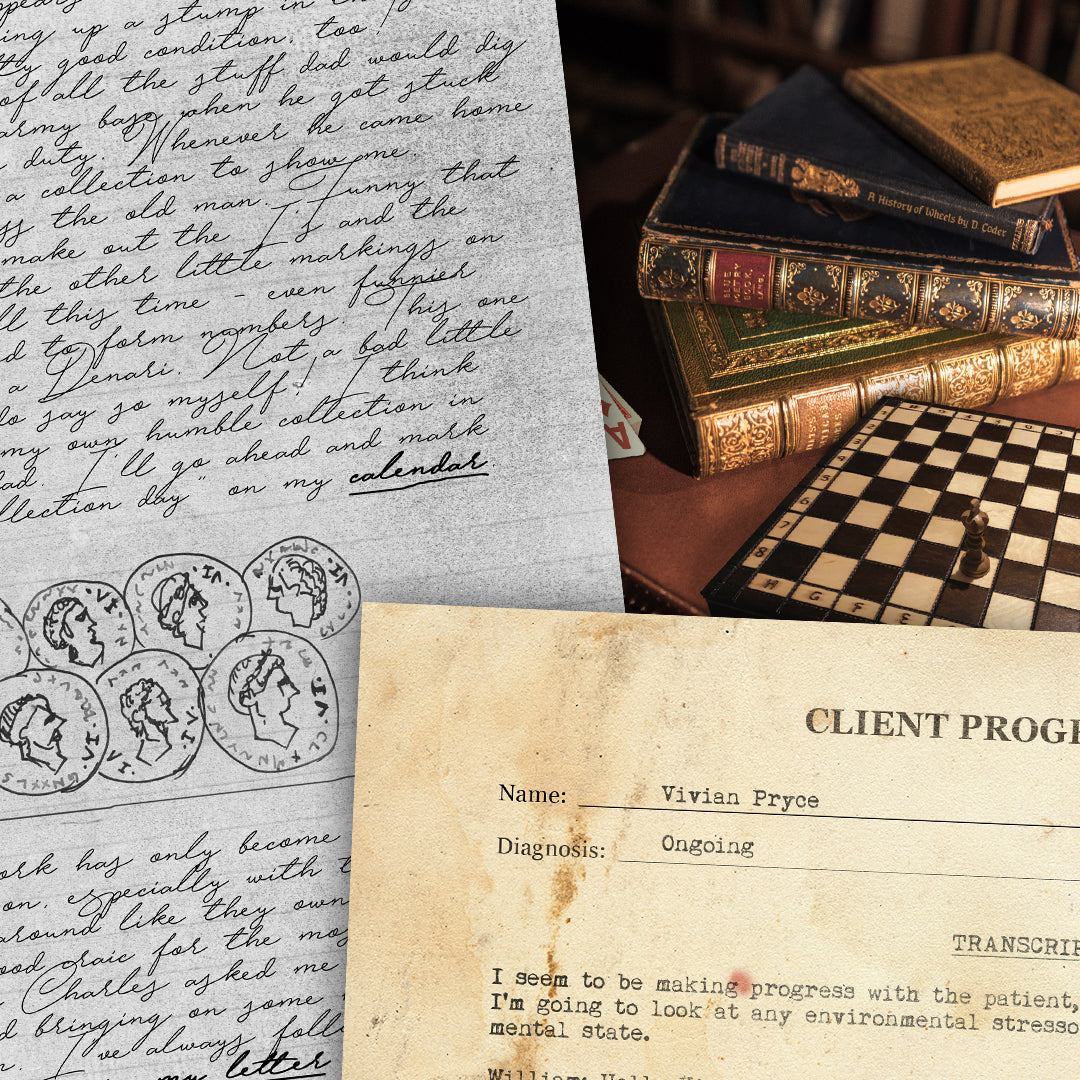 ing up a stump in the
ty good condition, too!
of all the stuff dad would dig
army base when he got stuck
duty. Whenever he came home
a collection to show me.
ss the old man. Funny that
make out the I's and the
the other little markings on
ll this time - even funnier
d to form numbers. This one
a Denari. Not a bad little
do say so myself! I think
my own humble collection in
ad. I'll go ahead and mark
llection day" on my calendar.
·VI·
·IV·
·IV·
·IV·
·VI·
·IV·
·IV·
ork has only become
on, especially with t
around like they own
ood craic for the mos
Charles asked me
d bringing on some
I've always follo
my letter
A History of Wheels by D. Coder
A
5
6
7
8
H G F E
CLIENT PROGR
Name: Vivian Pryce
Diagnosis: Ongoing
TRANSCRIP
I seem to be making progress with the patient,
I'm going to look at any environmental stresso
mental state.